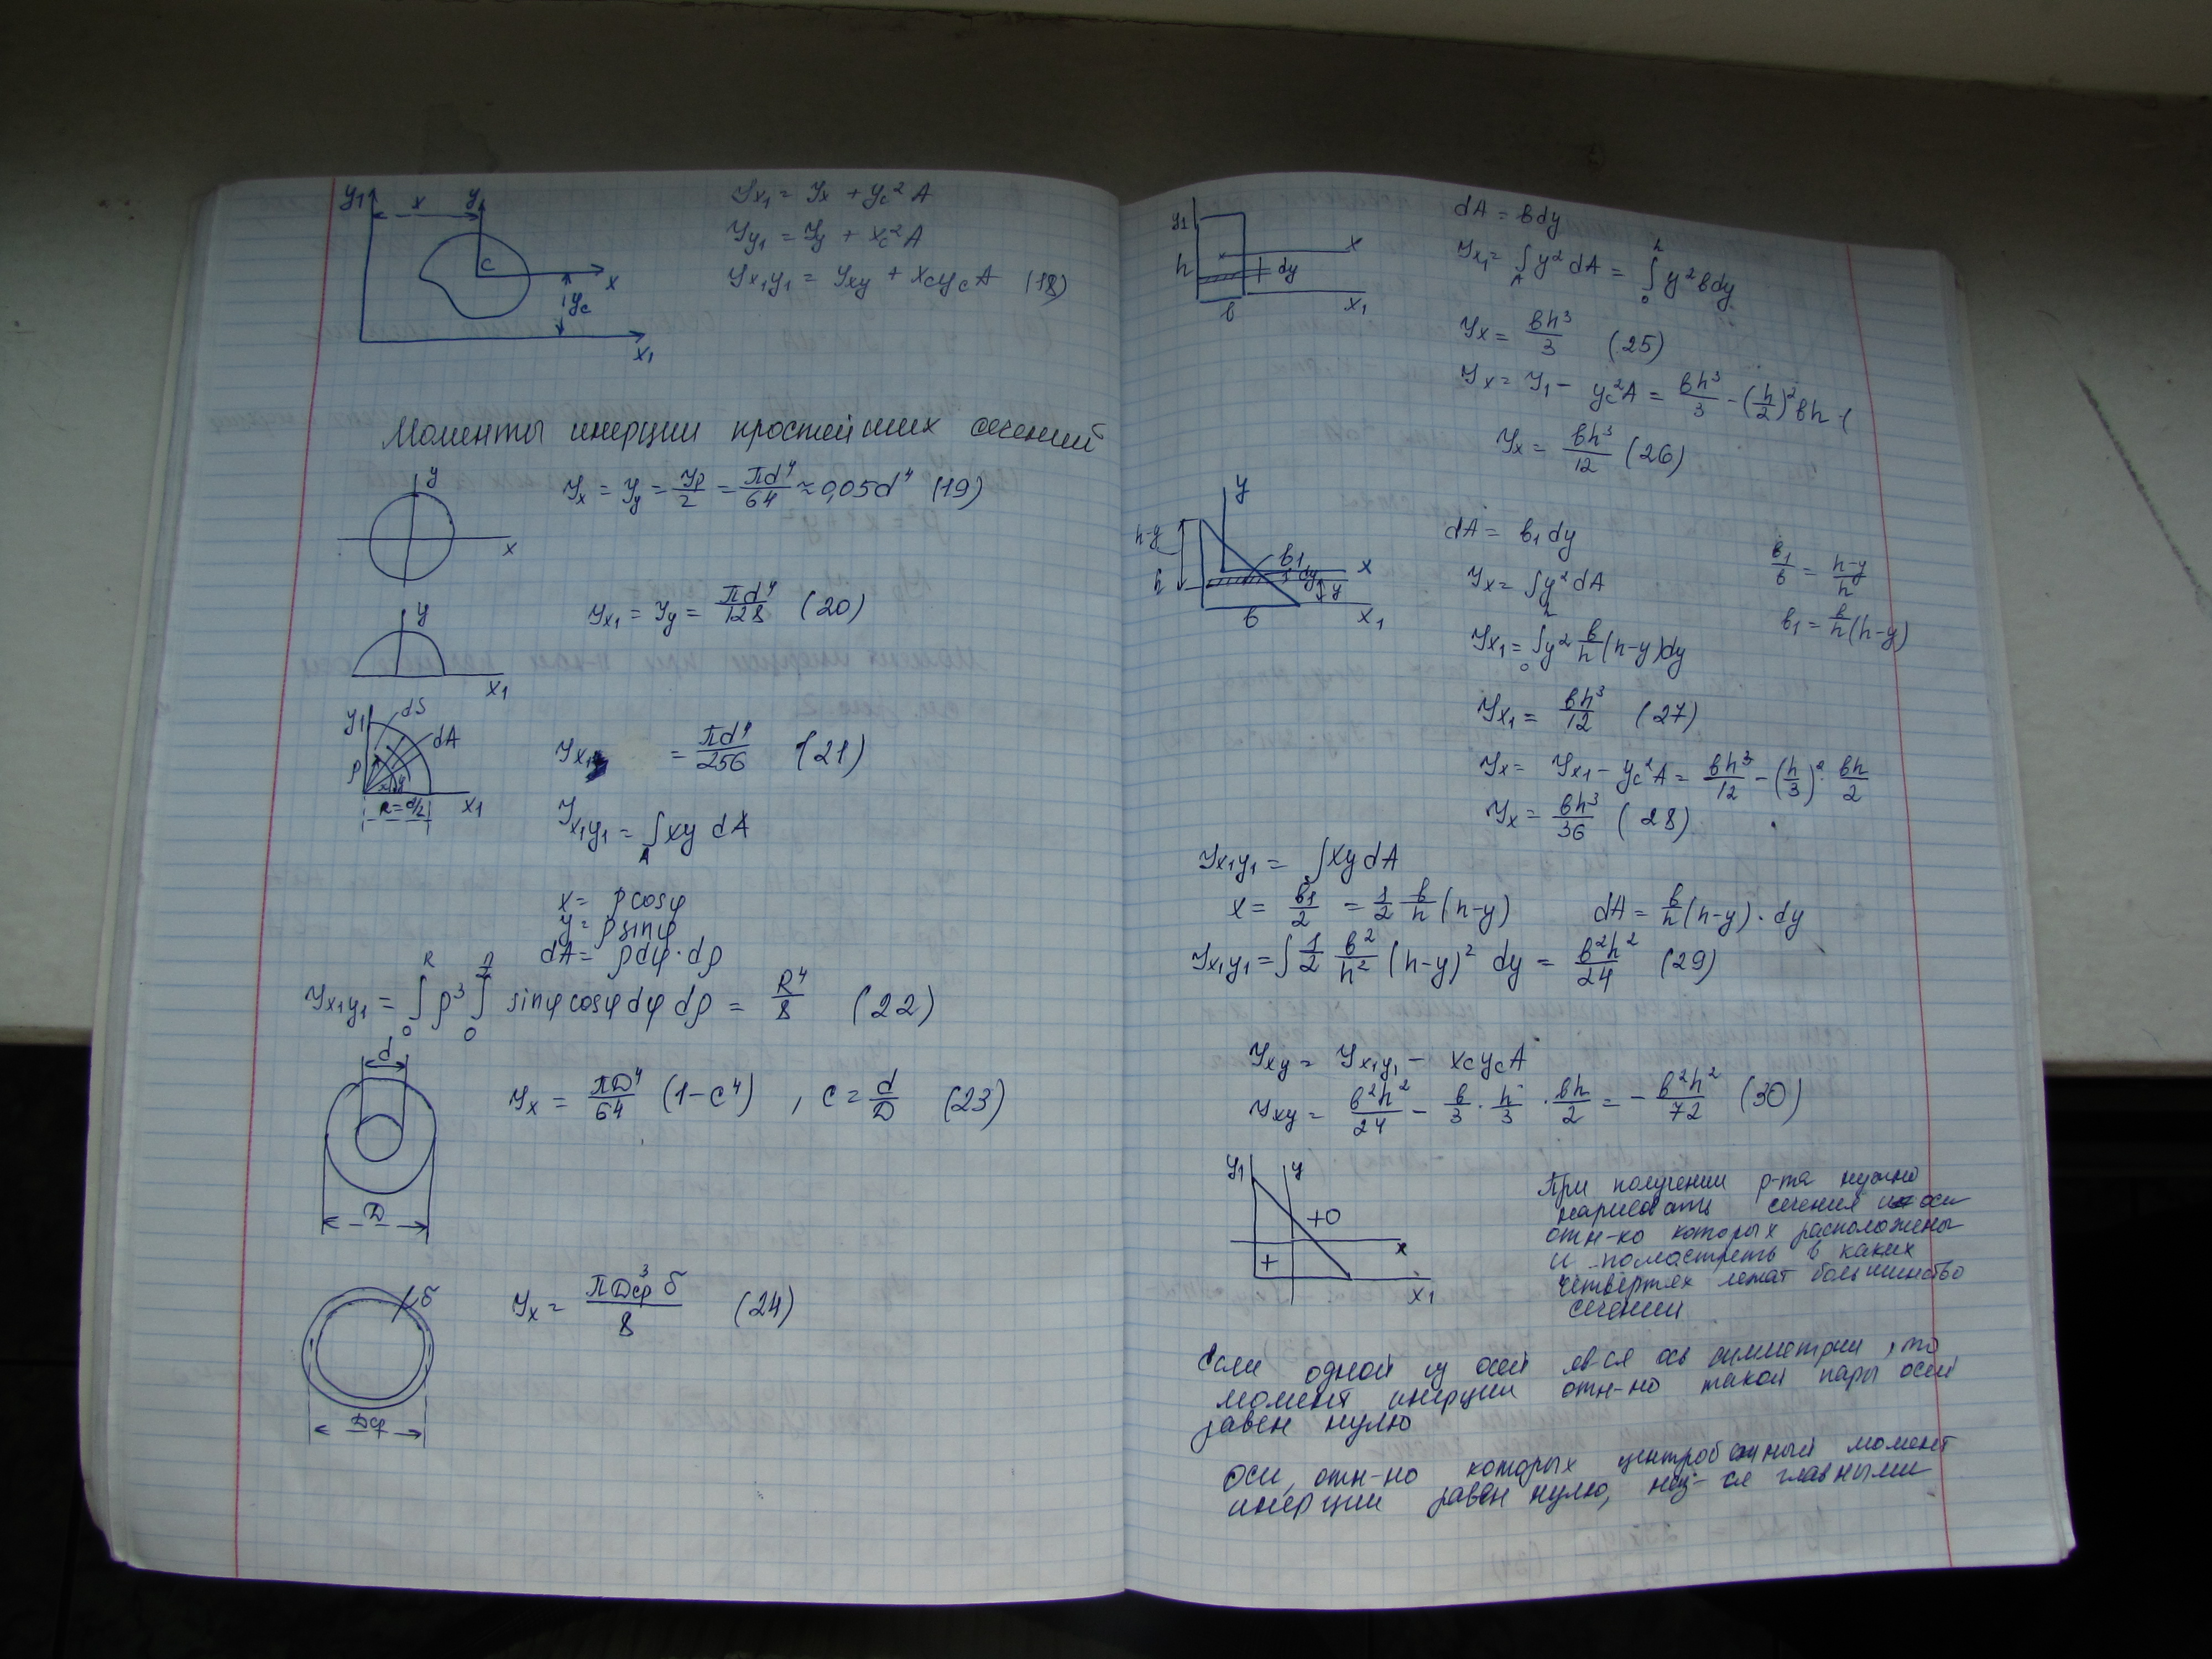 y₁ x y
C
x
yc
x₁
Jx₁ = Jx + yc² A
Jy₁ = Jy + xc² A
Jx₁y₁ = Jxy + xc yc A (18)
Моменты инерции простейших сечений
y
x
Jx = Jy = Jρ/2 = πd⁴/64 ≈ 0,05d⁴ (19)
y
x₁
Jx₁ = Jy = πd⁴/128 (20)
y₁ dS
dA
ρ
R=d/2 x₁
Jx₁ = πd⁴/256 (21)
Jx₁y₁ = ∫A xy dA
x = ρcosφ
y = ρsinφ
dA = ρdφ·dρ
Jx₁y₁ = ∫₀ᴿ ρ³ ∫₀ sinφcosφdφ dρ = R⁴/8 (22)
d
D
Jx = πD⁴/64 (1-c⁴) , c = d/D (23)
δ
Dср
Jx = πDср³ δ/8 (24)
y₁
x
h dy
в x₁
dA = вdy
Jx₁ = ∫A y² dA = ∫₀ʰ y² вdy
Jx = вh³/3 (25)
Jx = J₁ - yc²A = вh³/3 - (h/2)² вh
Jx = вh³/12 (26)
y
h-y
в₁
dy x
h y
в x₁
dA = в₁ dy
в₁/в = (h-y)/h
Jx = ∫y² dA
в₁ = в/h (h-y)
Jx₁ = ∫₀ʰ y² в/h (h-y)dy
Jx₁ = вh³/12 (27)
Jx = Jx₁ - yc²A = вh³/12 - (h/3)² · вh/2
Jx = вh³/36 (28)
Jx₁y₁ = ∫xy dA
x = в₁/2 = 1/2 в/h (h-y) dA = в/h (h-y)·dy
Jx₁y₁ = ∫ 1/2 в²/h² (h-y)² dy = в²h²/24 (29)
Jxy = Jx₁y₁ - xc yc A
Jxy = в²h²/24 - в/3 · h/3 · вh/2 = - в²h²/72 (30)
y₁ y
+0
x
+
x₁
При получении р-та нужно
нарисовать сечения и оси
отн-ко которых расположены
и посмотреть в каких
четвертях лежат большинство
сечении
Если одной из осей явся ось симметрии, то
момент инерции отн-но такой пары осей
равен нулю
Оси, отн-но которых центробежный момент
инерции равен нулю, наз-ся главными